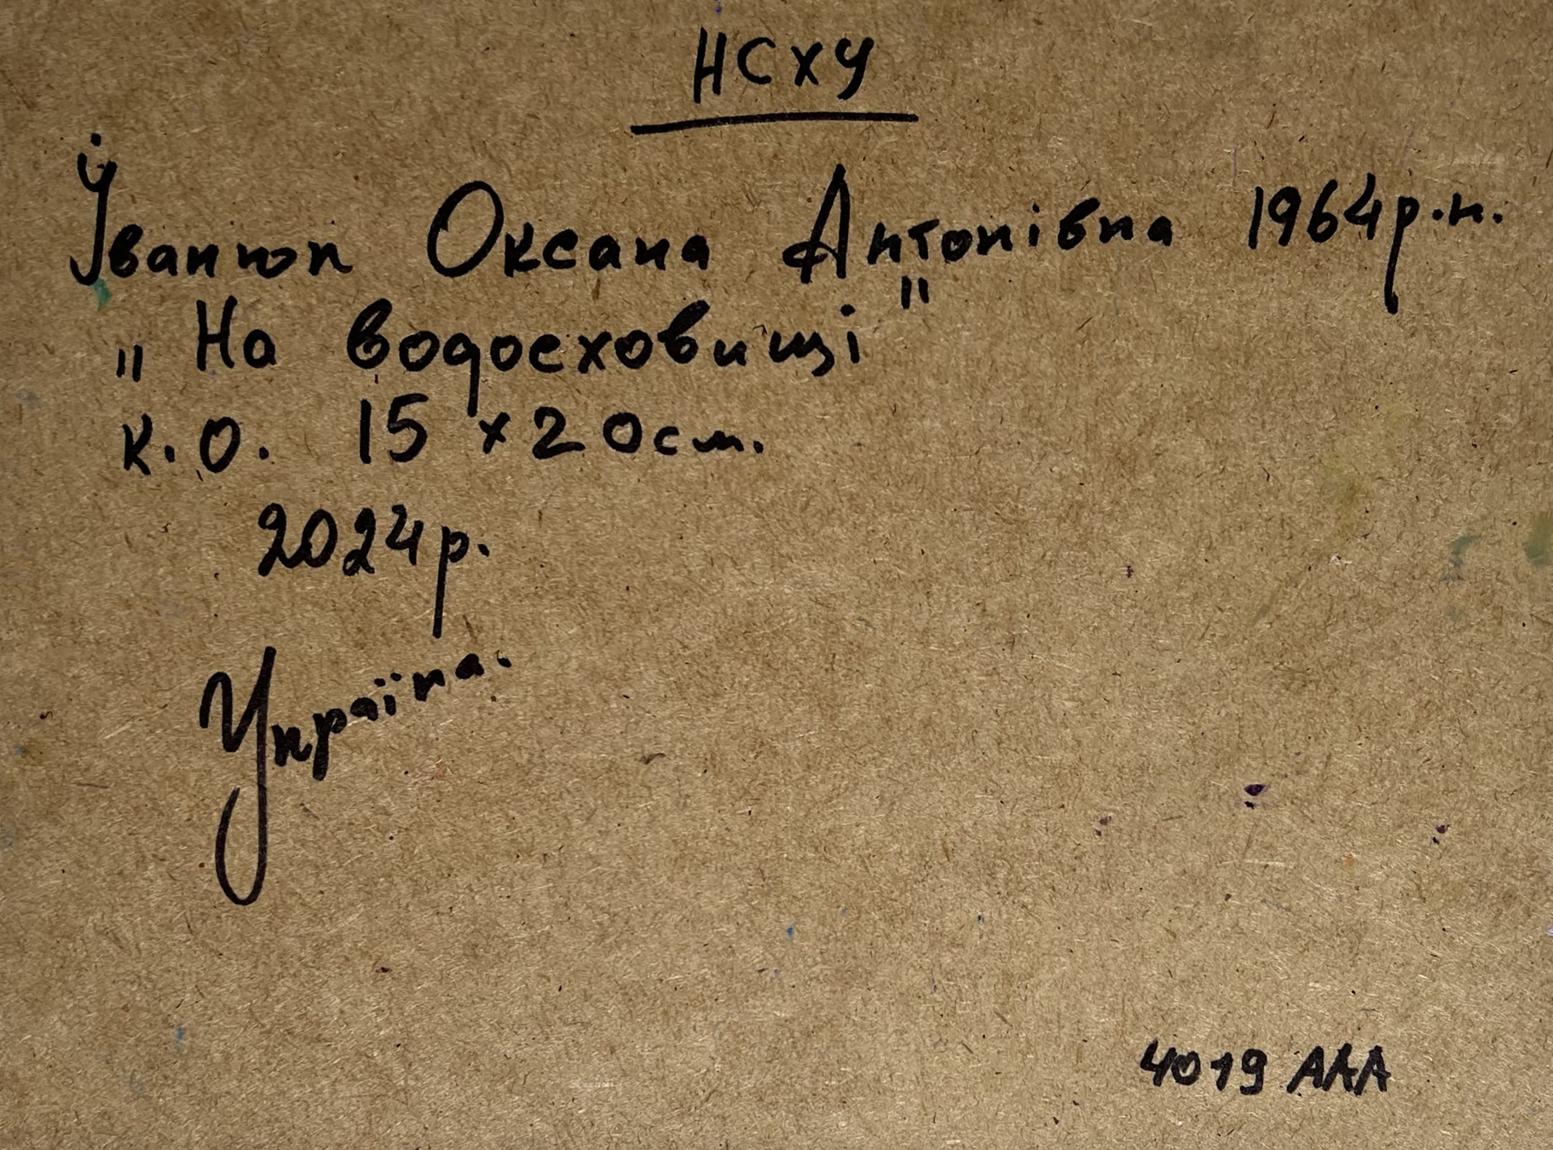 НСХУ
Іванюк Оксана Антонівна 1964р.н.
„На водосховищі"
к.о. 15 х 20см.
2024р.
Україна.
4019 ААА